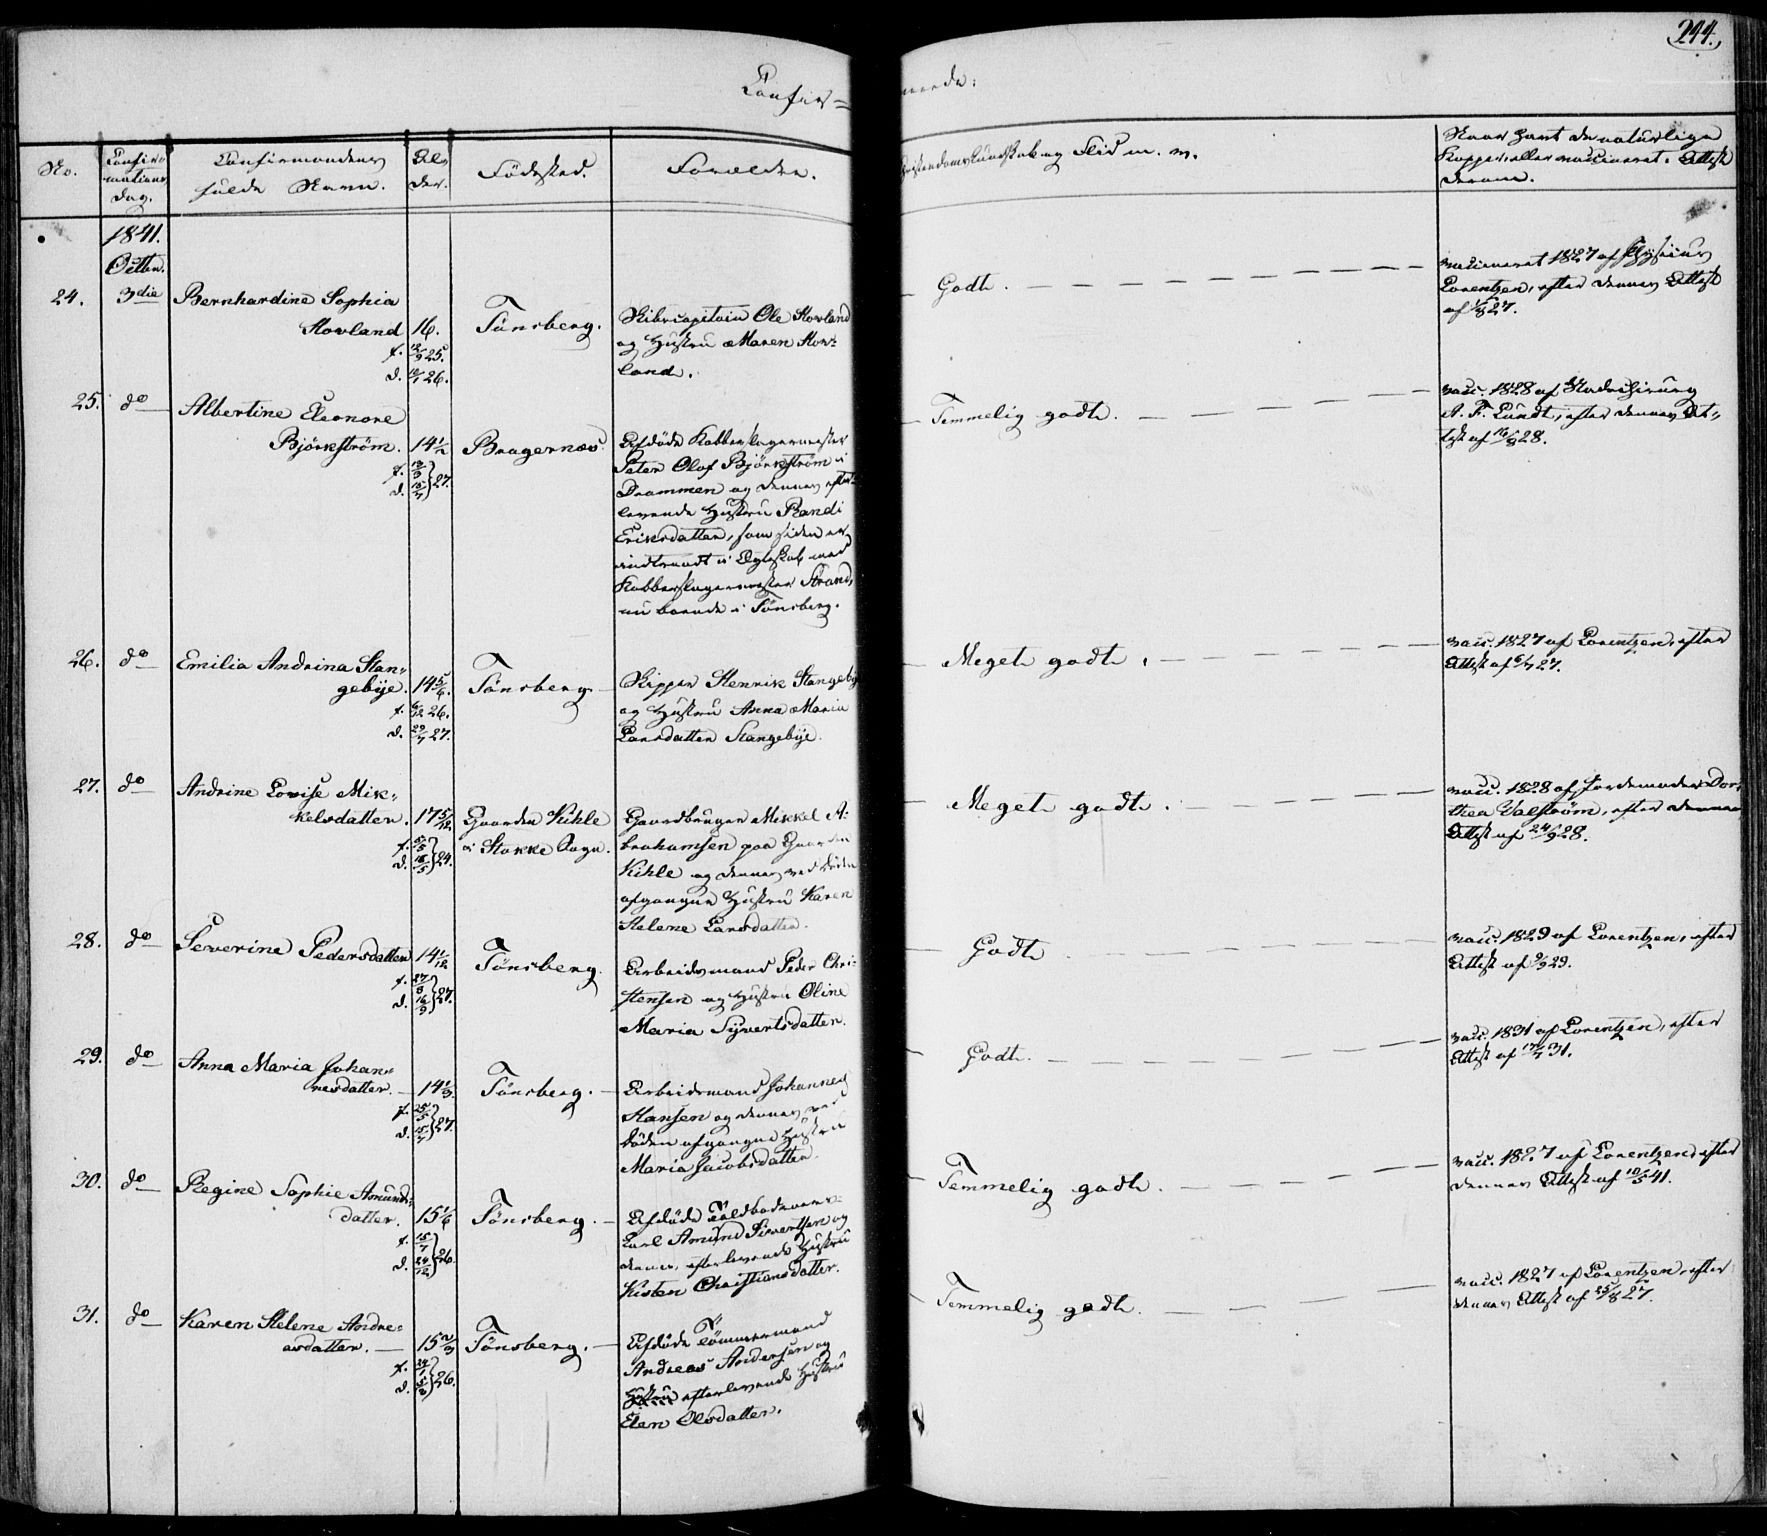 244.
Confir=
merede.
No.
Confir=
mations
Dag.
Confirmandens
fulde Navn.
Al=
der.
Födested.
Forældre.
Christendomskundskab og Flid m. m.
Naar havt de naturlige
Kopper, eller vaccineret. Attest
derom.
1841.
Octbr.
24.
3die
Bernhardine Sophia
Hovland
16.
f. 12/9 25.
d. 12/1 26.
Tönsberg.
Skibscapitain Ole Hovland
og Hustru Maren Hov=
land.
Godt.
vaccineret 1827 af Physicus
Lorentzen, efter dennes Attest
af 1/8 27.
25.
do
Albertine Eleonore
Björkström.
14 1/2
f. 12/3
d. 15/4 } 27.
Bragernæs
Afdöde Kobberslagermester
Peter Olof Björkström i
Drammen og dennes efter=
levende Hustru Randi
Eriksdatter, som siden er
indtraadt i Ægteskab med
Kobberslagermester Strand,
nu boende i Tönsberg.
Temmelig godt.
vacc. 1828 af Stadschirurg
A. F. Lundt, efter dennes At=
test af 16/8 28.
26.
do
Emilia Andrina Stan=
gebije.
14 5/6.
f. 6/12 26.
d. 29/4 27.
Tönsberg
Skipper Henrik Stangebije
og Hustru Anna Maria
Larsdatter Stangebije.
Meget godt.
vacc. 1827 af Lorentzen, efter
Attest af 6/7 27.
27.
do
Andrine Lovise Mik=
kelsdatter.
17 5/12.
f. 5/5
d. 16/5 } 24.
Gaarden Kihle
i Stokke Sogn.
Gaardbruger Mikkel A=
brahamsen paa Gaarden
Kihle og dennes ved Döden
afgangne Hustru Karen
Helene Larsdatter.
Meget godt.
vacc. 1828 af Jordemoder Dor=
thea Valström, efter dennes
Attest af 24/9 28.
28.
do
Severine Pedersdatter
14 1/12
f. 27/8
d. 16/9 } 27.
Tönsberg.
Arbeidsmand Peder Chri=
stensen og Hustru Oline
Maria Syvertsdatter.
Godt
vacc. 1829 af Lorentzen, efter
Attest af 9/9 29.
29.
do
Anna Maria Johan=
nesdatter.
14 1/3.
f. 25/5
d. 15/7 } 27.
Tönsberg.
Arbeidsmand Johannes
Hansen og dennes ved
Döden afgangne Hustru
Maria Jacobsdatter.
Godt.
vacc. 1831 af Lorentzen, efter
Attest af 17/7 31.
30.
do
Regine Sophie Amunds=
datter.
15 1/6
f. 15/7
d. 24/12 } 26.
Tönsberg.
Afdöde Toldbodroer
Carl Amund Sivertsen og
dennes efterlevende Hustru
Kisten Christiansdatter.
Temmelig godt.
vacc. 1827 af Lorentzen, efter
dennes Attest af 10/5 41.
31.
do
Karen Helene Andre=
asdatter.
15 2/3
f. 24/1
d. 5/2 } 26.
Tönsberg.
Afdöde Tömmermand
Andreas Andersen og
Hustru efterlevende Hustru
Elen Olsdatter.
Temmelig godt.
vacc. 1827 af Lorentzen, efter
dennes Attest af 25/8 27.